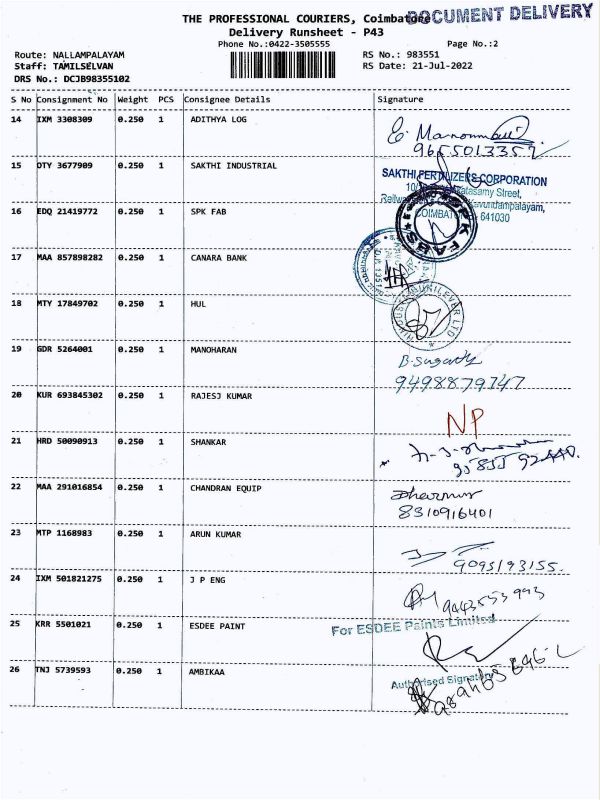 DOCUMENT DELIVERY
THE PROFESSIONAL COURIERS, Coimbatore
Delivery Runsheet - P43
Phone No.:0422-3505555 Page No.:2
Route: NALLAMPALAYAM RS No.: 983551
Staff: TAMILSELVAN RS Date: 21-Jul-2022
DRS No.: DCJB98355102
S No Consignment No Weight PCS Consignee Details Signature
14 IXM 3308309 0.250 1 ADITHYA LOG
9655013352
15 OTY 3677909 0.250 1 SAKTHI INDUSTRIAL
SAKTHI FERTILIZERS CORPORATION
Street,
Kavundampalayam,
COIMBATORE 641030
16 EDQ 21419772 0.250 1 SPK FAB
SPK FABS
17 MAA 857898282 0.250 1 CANARA BANK
18 MTY 17849702 0.250 1 HUL
HINDUSTAN UNILEVER LTD
19 GDR 5264001 0.250 1 MANOHARAN
9498879747
20 KUR 693845302 0.250 1 RAJESJ KUMAR
NP
21 HRD 50090913 0.250 1 SHANKAR
22 MAA 291016854 0.250 1 CHANDRAN EQUIP
8310916401
23 MTP 1168983 0.250 1 ARUN KUMAR
9095193155.
24 IXM 501821275 0.250 1 J P ENG
9443553993
25 KRR 5501021 0.250 1 ESDEE PAINT
For ESDEE Paints Limited
26 TNJ 5739593 0.250 1 AMBIKAA
Authorised Signatory